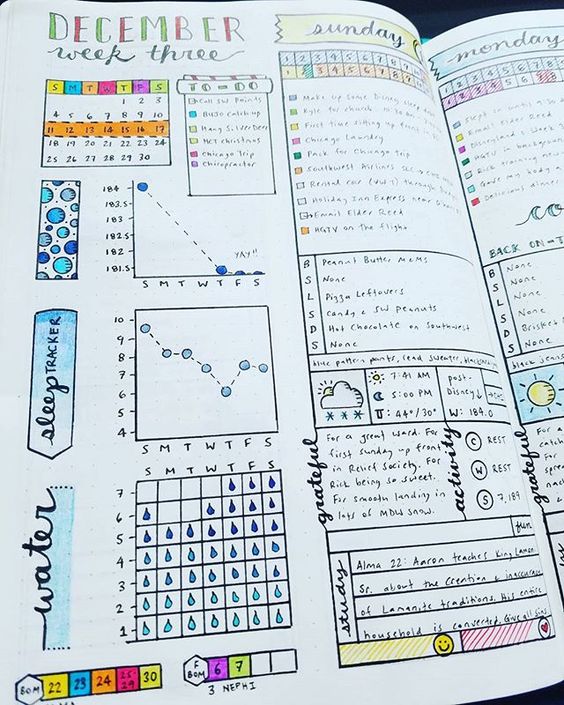 DECEMBER
week three
S M T W T F S
1 2 3
4 5 6 7 8 9 10
11 12 13 14 15 16 17
18 19 20 21 22 23 24
25 26 27 28 29 30
TO-DO
Call SW Points
BUJO catch up
Hang Silver Deer
MCT christmas
Chicago Trip
Chiropractor
184
183.5
183
182.5
182
181.5
YAY!!
S M T W T F S
sleep TRACKER
10
9
8
7
6
5
4
S M T W T F S
water
S M T W T F S
7
6
5
4
3
2
1
BOM 22 23 24 25-29 30
F BOM 6 7
3 NEPHI
sunday
1 2 3 4 5 6 7 8 9 10 11 12
Make up some Disney sleep
Kyle for church
First time sitting
Chicago Laundry
Pack for Chicago Trip
Southwest Airlines
Rental car
Holiday Inn Express near
Email Elder Reed
HGTV on the flight
B Peanut Butter M&Ms
S None
L Pizza Leftovers
S Candy & SW Peanuts
D Hot Chocolate on Southwest
S None
blue pattern points, read sweater,
7:41 AM
5:00 PM
T: 44°/30°
post-
Disney
W: 184.0
grateful
For a great ward. For
first Sunday up front
in Relief Society. For
Rick being so sweet.
For smooth landing in
lots of MDW snow.
activity
C REST
W REST
S 7,189
fun
study
Alma 22: Aaron teaches King Lamoni
Sr. about the Creation & inaccuracy
of Lamanite traditions. His entire
household is converted. Give all sins
monday
1 2 3 4 5 6 7 8
Slept until 9:30
HGTV in background
Rick training new
Gave my body a
Delicious dinner
BACK ON-T
B None
S None
L None
S None
D Brisket
S None
black jeans
grateful
For a
catch
For
spread